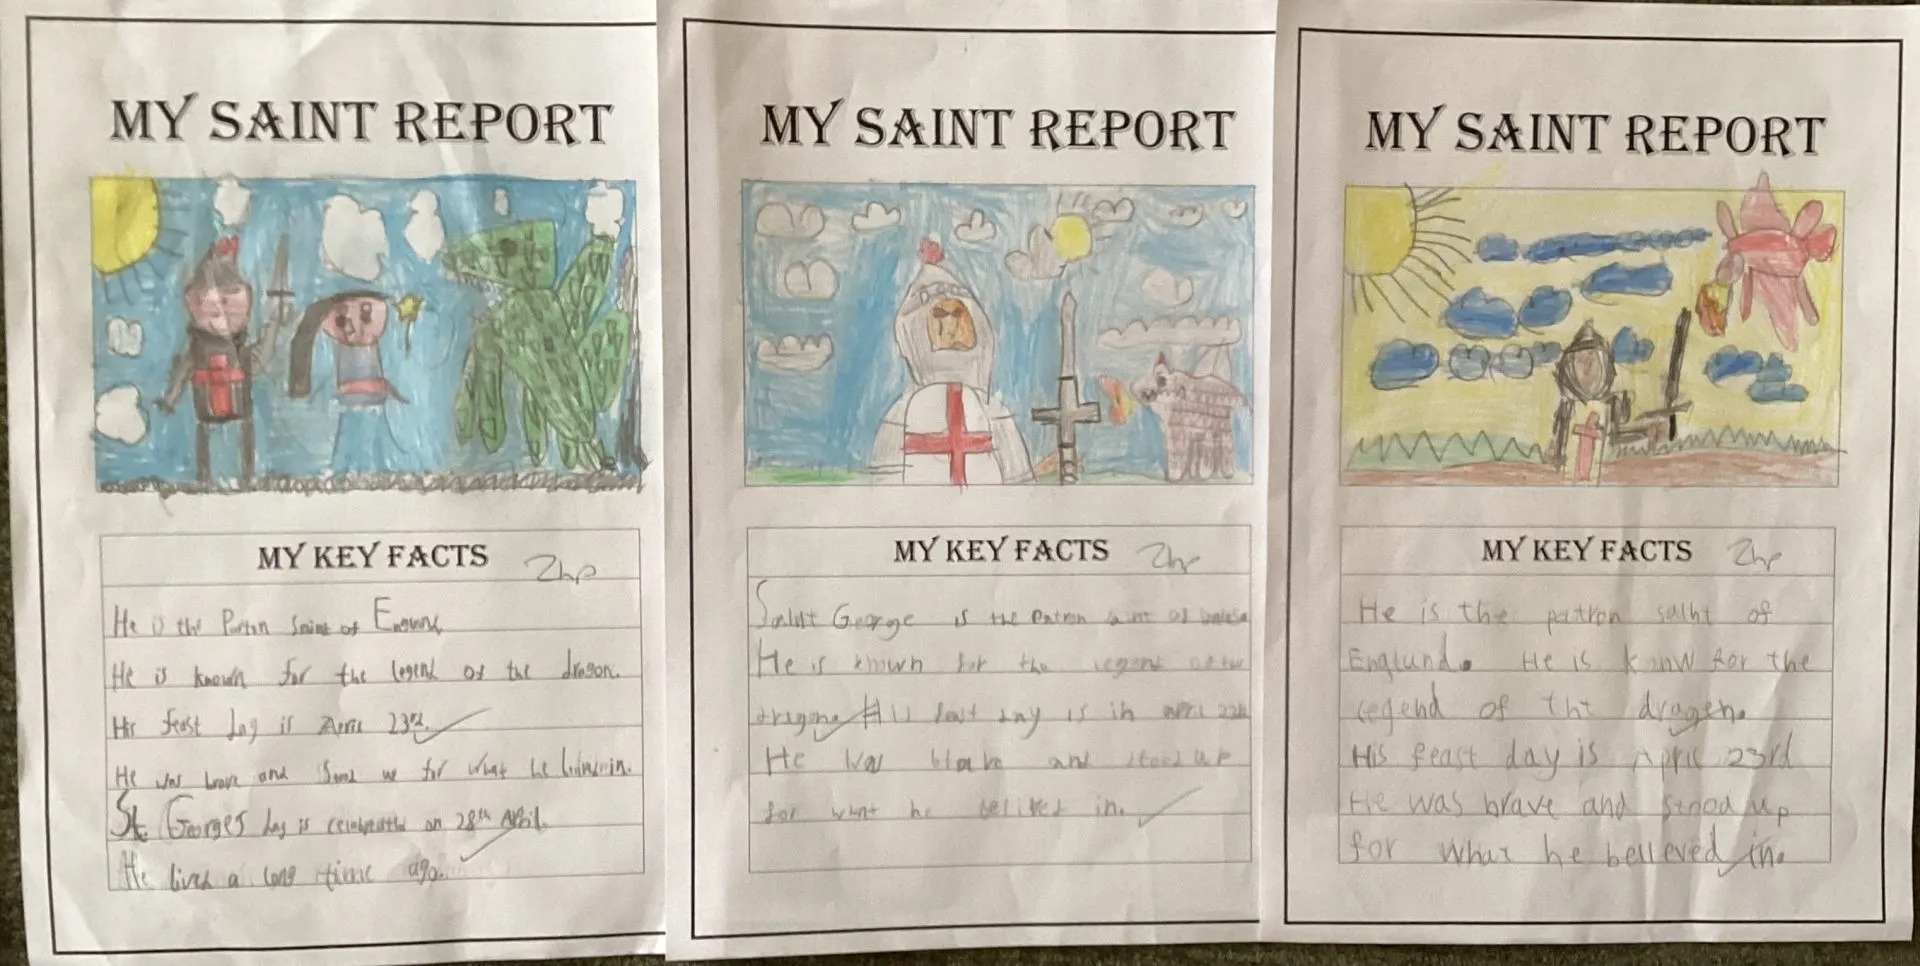 MY SAINT REPORT
MY KEY FACTS 2hp
He is the Partin Saint of
He is known for the legend of the dragon.
His feast day is April 23rd.
He was brave and Sood up for what he in.
St. Georges day is on 28th April.
He lived a long time ago.
MY SAINT REPORT
MY KEY FACTS
Saint George is the Patron saint of
He is known for the legend of the
His feast day is in april
He was brave and stood up
for what he belived in.
MY SAINT REPORT
MY KEY FACTS
He is the patron saint of
Englund. He is know for the
legend of tht dragen.
His feast day is April 23rd
He was brave and stood up
for what he belleved in.